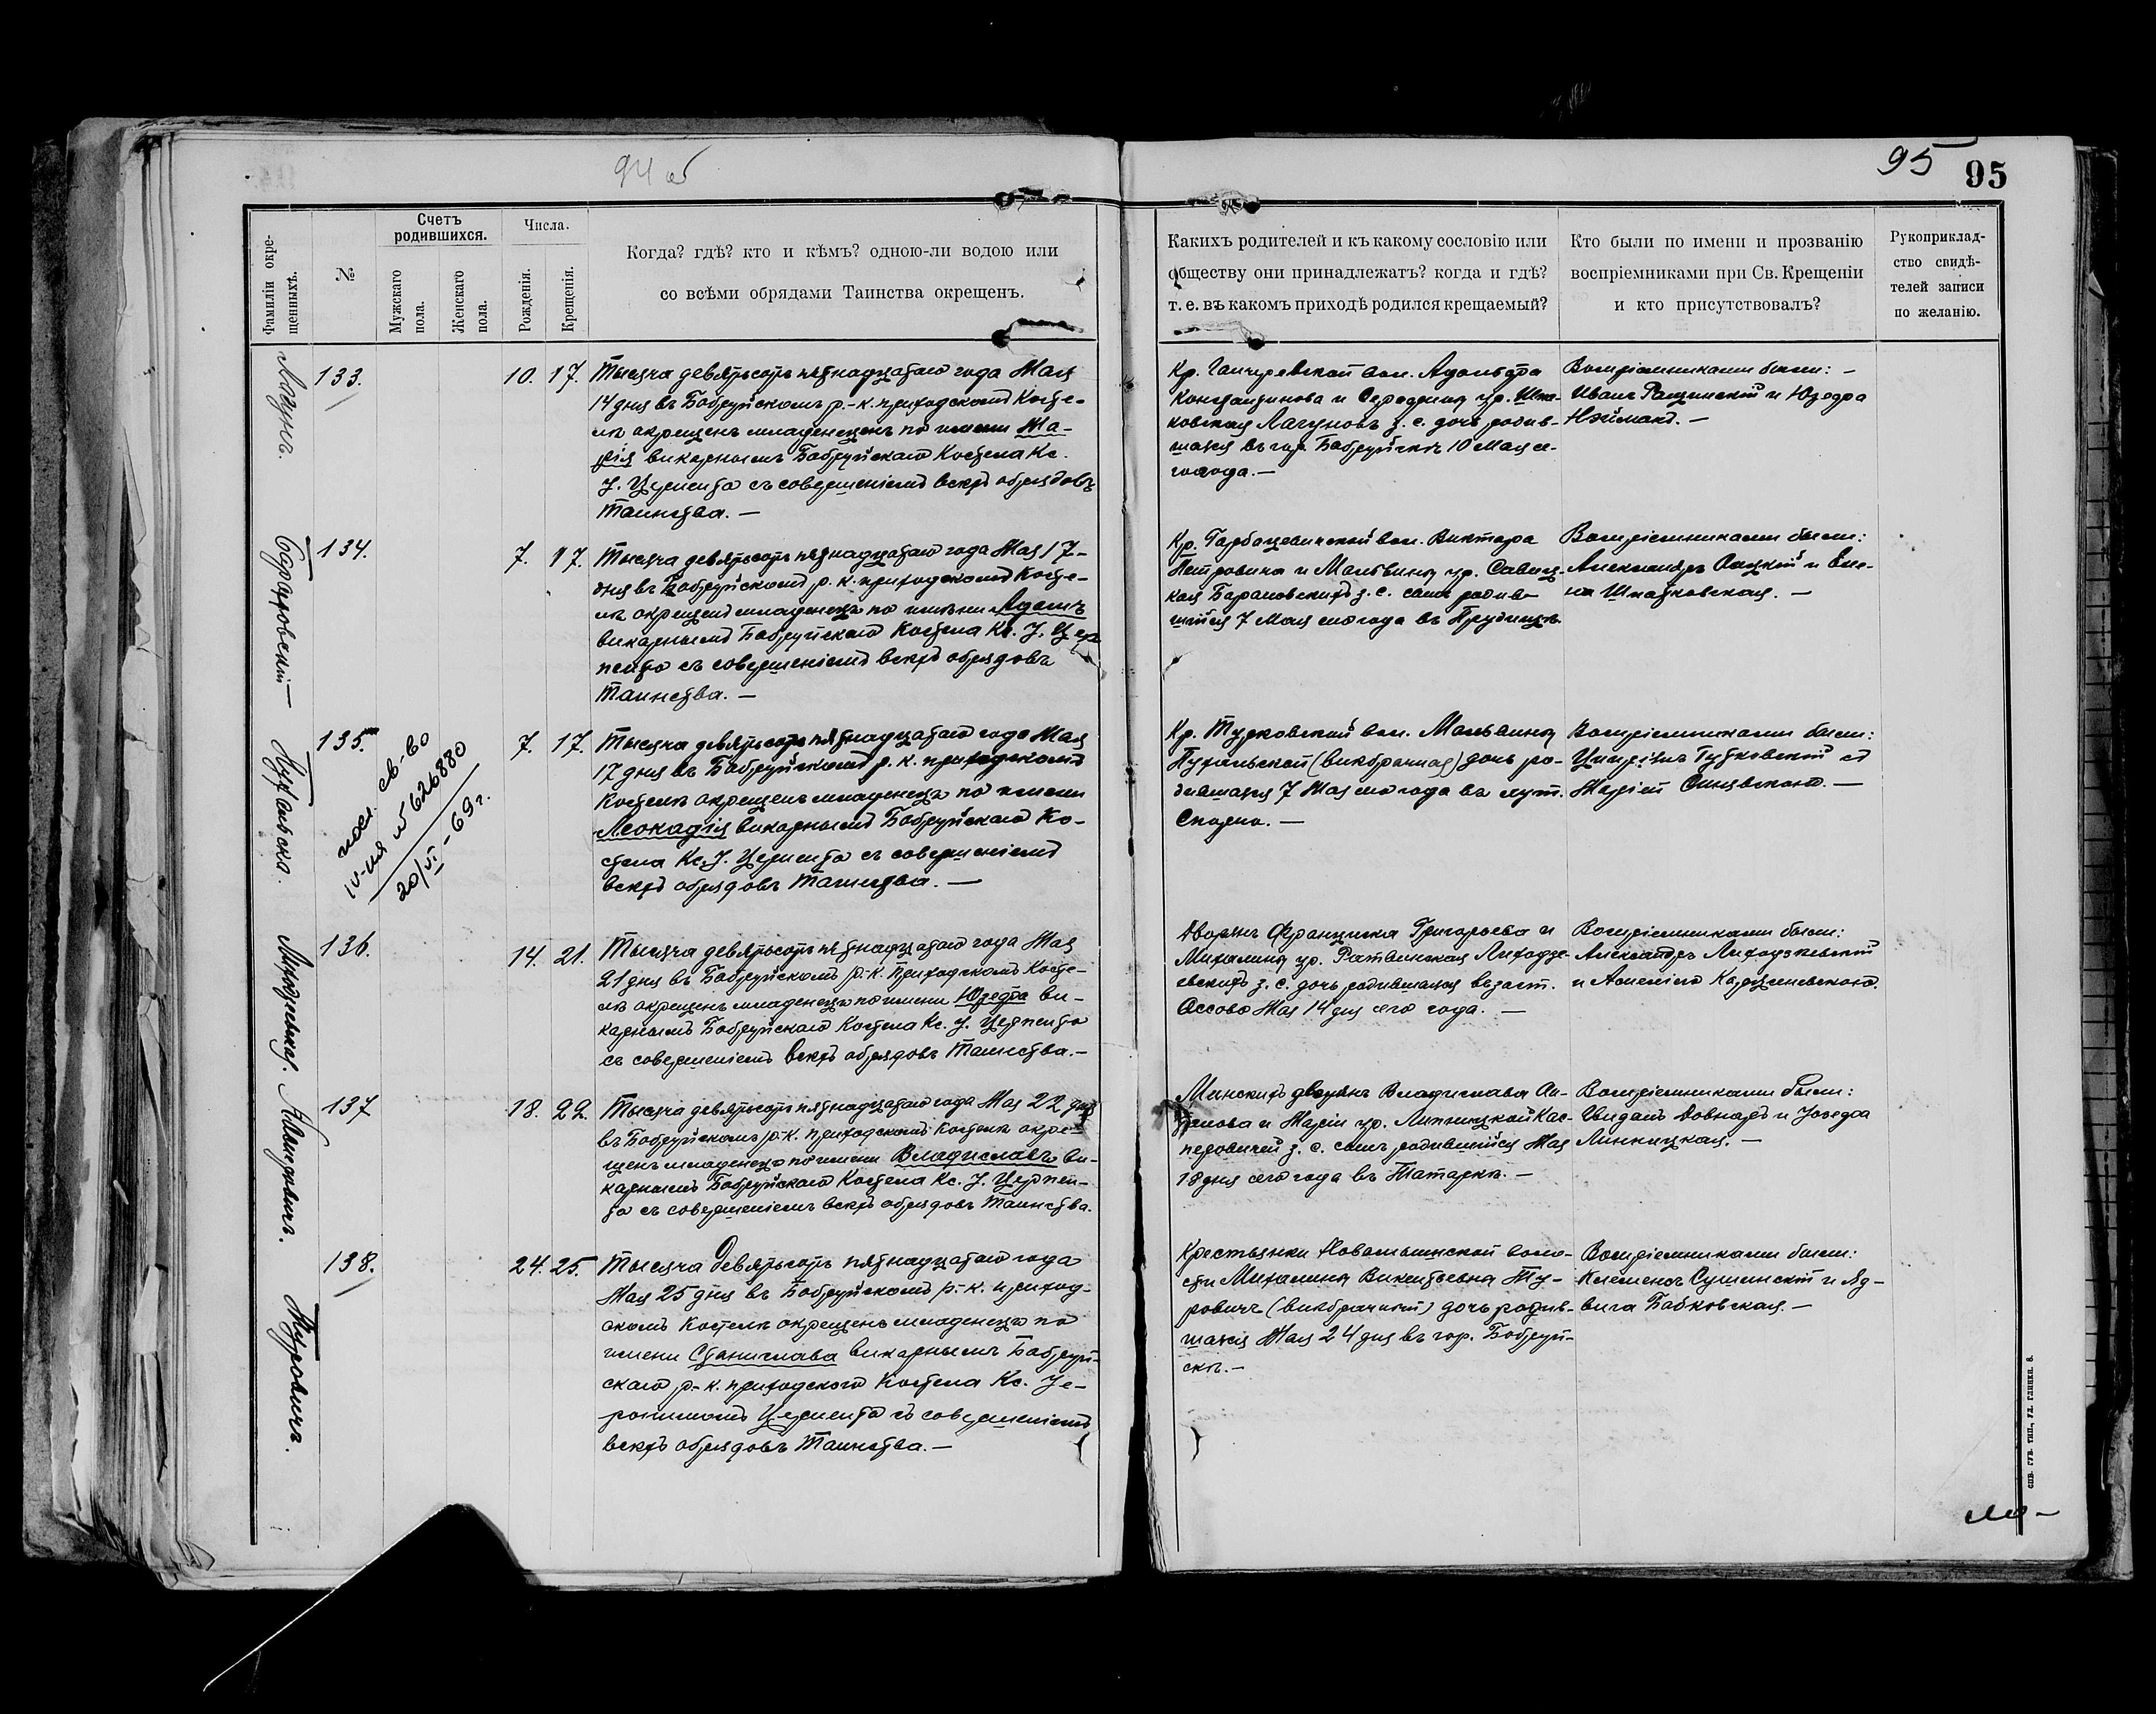 94 об
95
95
Фамиліи окре-
щенныхъ.
№
Счетъ
родившихся.
Мужскаго
пола.
Женскаго
пола.
Числа.
Рожденія.
Крещенія.
Когда? гдѣ? кто и кѣмъ? одною-ли водою или
со всѣми обрядами Таинства окрещенъ.
Какихъ родителей и къ какому сословію или
обществу они принадлежатъ? когда и гдѣ?
т. е. въ какомъ приходѣ родился крещаемый?
Кто были по имени и прозванію
воспріемниками при Св. Крещеніи
и кто присутствовалъ?
Рукоприклад-
ство свидѣ-
телей записи
по желанію.
133.
10. 17.
Тысяча девятьсотъ пятнадцатаго года Мая
14 дня въ Бобруйскомъ р.-к. приходскомъ Косте-
лѣ окрещенъ младенецъ по имени Ма-
рія викарнымъ Бобруйскаго Костела Кс.
I. Церпенто съ совершеніемъ всѣхъ обрядовъ
Таинства. —
Кр. вол. Адольфа
Константинова и ур. Шпа-
ковская Лагуновъ з. с. дочь родив-
шаяся въ гор. Бобруйскѣ 10 Мая се-
го года. —
Воспріемниками были: —
Иванъ Ращинскій и Юзефа
Нэйманъ. —
Барановскій
134.
7. 17.
Тысяча девятьсотъ пятнадцатаго года Мая 17-
дня въ Бобруйскомъ р. к. приходскомъ Косте-
лѣ окрещенъ младенецъ по имени Адамъ
викарнымъ Бобруйскаго Костела Кс. I. Цер-
пенто съ совершеніемъ всѣхъ обрядовъ
Таинства. —
Кр. Горбацевичской вол. Виктора
Петровича и Мальвины ур. Савиц-
кая Барановскихъ з. с. сынъ родив-
шійся 7 Мая сего года въ
Воспріемниками были:
Александръ и Еле-
на Шпаковская. —
135.
посл. св-во
IV-ИЯ № 626880
20/VI - 69 г.
7. 17.
Тысяча девятьсотъ пятнадцатаго года Мая
17 дня въ Бобруйскомъ р. к. приходскомъ
Костелѣ окрещенъ младенецъ по имени
Леокадія викарнымъ Бобруйскаго Ко-
стела Кс. I. Церпенто съ совершеніемъ
всѣхъ обрядовъ Таинства. —
Кр. Турковской вол. Мальвины
(внѣбрачная) дочь ро-
дившаяся 7 Мая сего года въ
Воспріемниками были:
Гутковскій съ
Маріей Синявскою. —
136.
14. 21.
Тысяча девятьсотъ пятнадцатаго года Мая
21 дня въ Бобруйскомъ р.-к. Приходскомъ Косте-
лѣ окрещенъ младенецъ по имени Юзефа ви-
карнымъ Бобруйскаго Костела Кс. I. Церпенто
съ совершеніемъ всѣхъ обрядовъ Таинства. —
Дворянъ Франциска Григорьева и
Михалины ур. Ратвинская Лиходзі-
евскихъ з. с. дочь родившаяся въ заст.
Оссово Мая 14 дня сего года. —
Воспріемниками были:
Александръ Лиходзіевскій
и
137
18. 22.
Тысяча девятьсотъ пятнадцатаго года Мая 22 дня
въ Бобруйскомъ р.-к. приходскомъ Костелѣ окре-
щенъ младенецъ по имени Владиславъ ви-
карнымъ Бобруйскаго Костела Кс. I. Церпен-
то съ совершеніемъ всѣхъ обрядовъ Таинства.
Минскихъ дворянъ Владислава Ан-
тонова и Маріи ур. Липницкой Кас-
перовичей з. с. сынъ родившійся Мая
18 дня сего года въ Татаркѣ. —
Воспріемниками были:
Довнаръ и Юзефа
Липницкая. —
138.
24. 25.
Туровичъ.
Тысяча девятьсотъ пятнадцатаго года
Мая 25 дня въ Бобруйскомъ р.-к. приход-
скомъ Костелѣ окрещенъ младенецъ по
имени Станислава викарнымъ Бобруй-
скаго р.-к. приходскаго Костела Кс. Іе-
ронимомъ Церпенто съ совершеніемъ
всѣхъ обрядовъ Таинства. —
Крестьянки воло-
сти Михалины Викентьевны Ту-
ровичъ (внѣбрачный) дочь родив-
шаяся Мая 24 дня въ гор. Бобруй-
скѣ. —
Воспріемниками были:
Клеменсъ Сушинскій и Яд-
вига Бабковская. —
СПБ. ГУБ. ТИП., УЛ. ГЛИНКИ. 8.